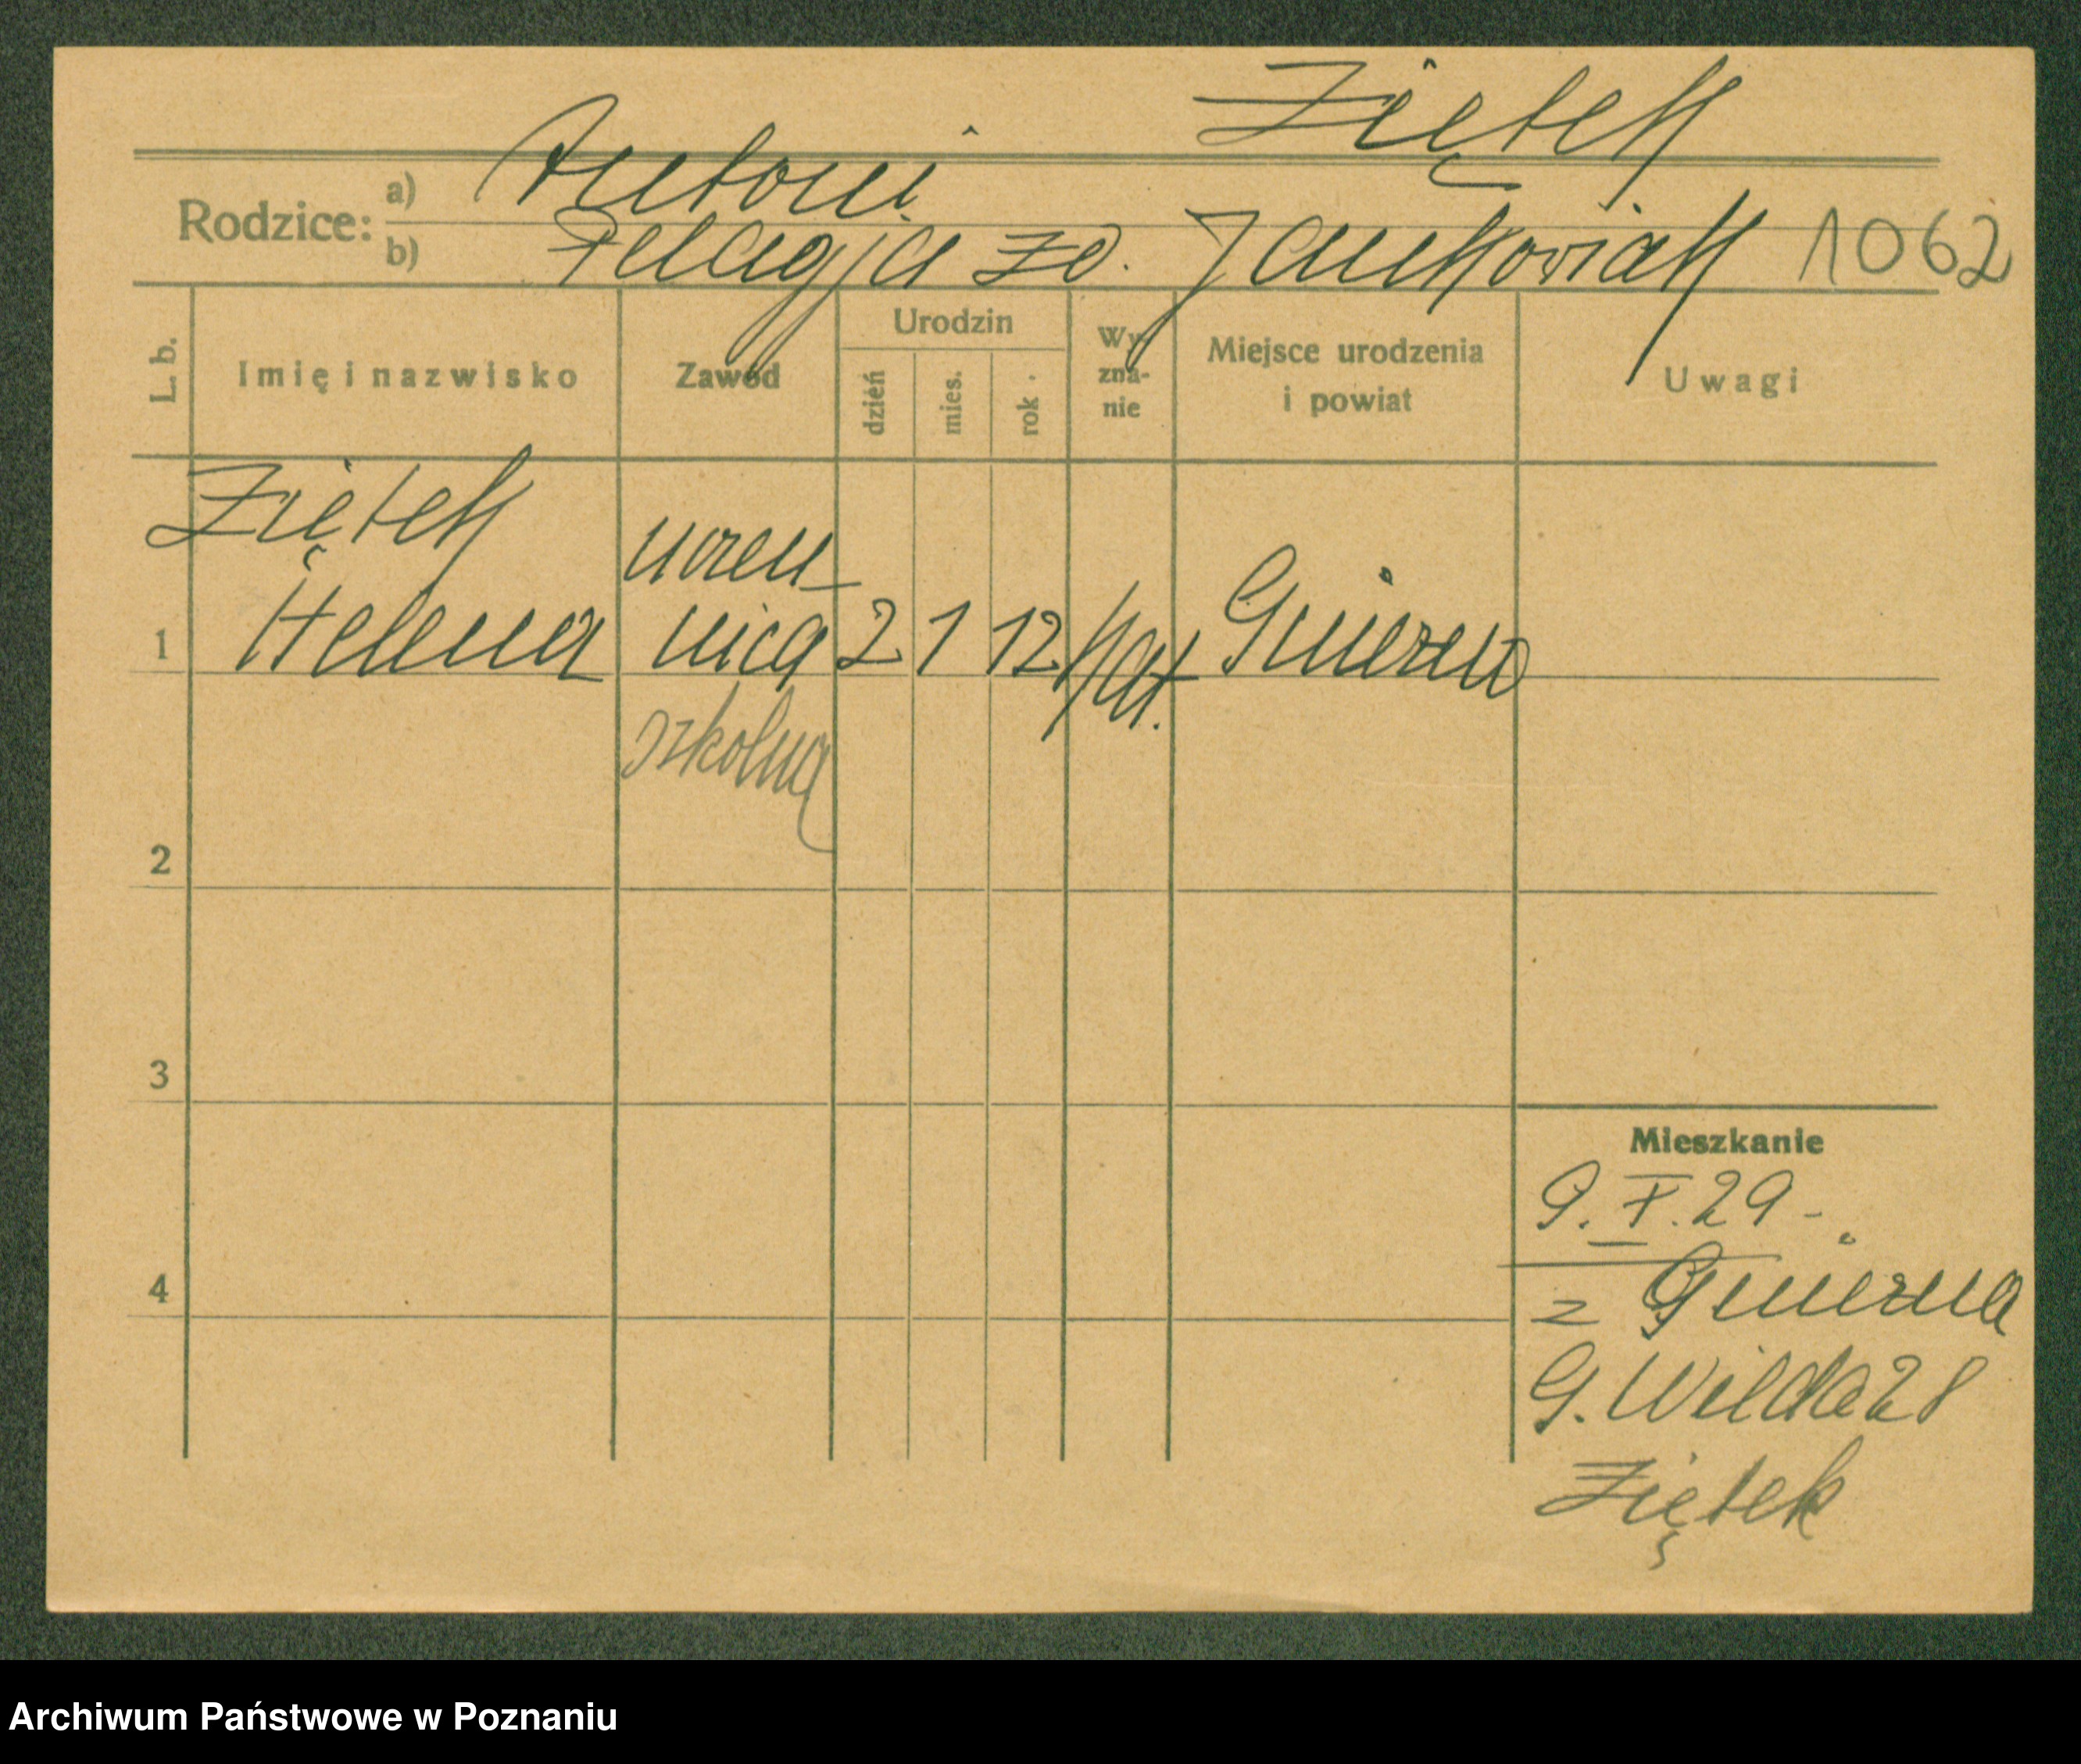 Ziętek
Rodzice: a) Antoni
b) Pelagja zd. Jankowiak 1062
L. b. Imię i nazwisko Zawód Urodzin dzień mies. rok. Wyzna-nie Miejsce urodzenia i powiat Uwagi
Ziętek
uczen-
1 Helena nica 2 1 12 kat. Gniezno
szkolna
2
3
Mieszkanie
9. X. 29 -
4 z Gniezna
G. Wilda 28
Ziętek
Archiwum Państwowe w Poznaniu